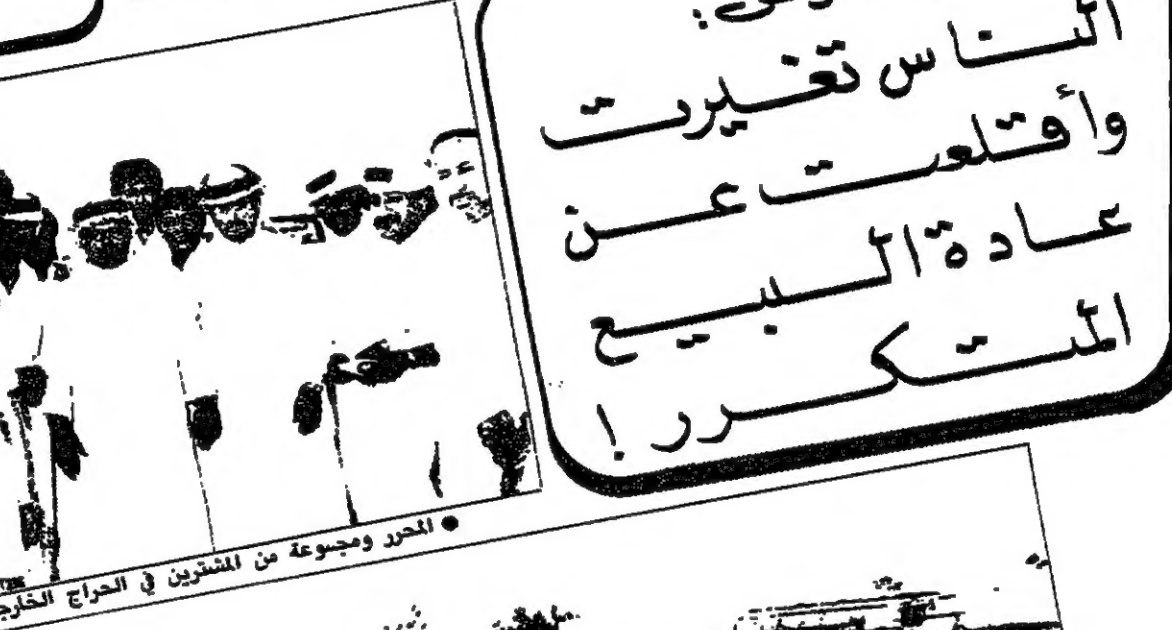 الناس تغيرت
وأقتلعت عن
عادة البيع
المتكرر !
● المحرر ومجموعة من المشترين في الحراج